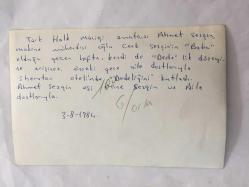 Türk Halk Müziği sanatçısı Ahmet Sezgin,
makine mühendisi oğlu Cenk Sezgin'in "Baba"
olduğu geçen hafta, kendi de "Dede"lik düzeyi
ne erişince, evvelki gece aile dostlarıyla
Sheraton otelinde "Dedeliğini" kutladı.
Ahmet Sezgin eşi Sezgin ve Aile
dostlarıyla.
3-8-1984